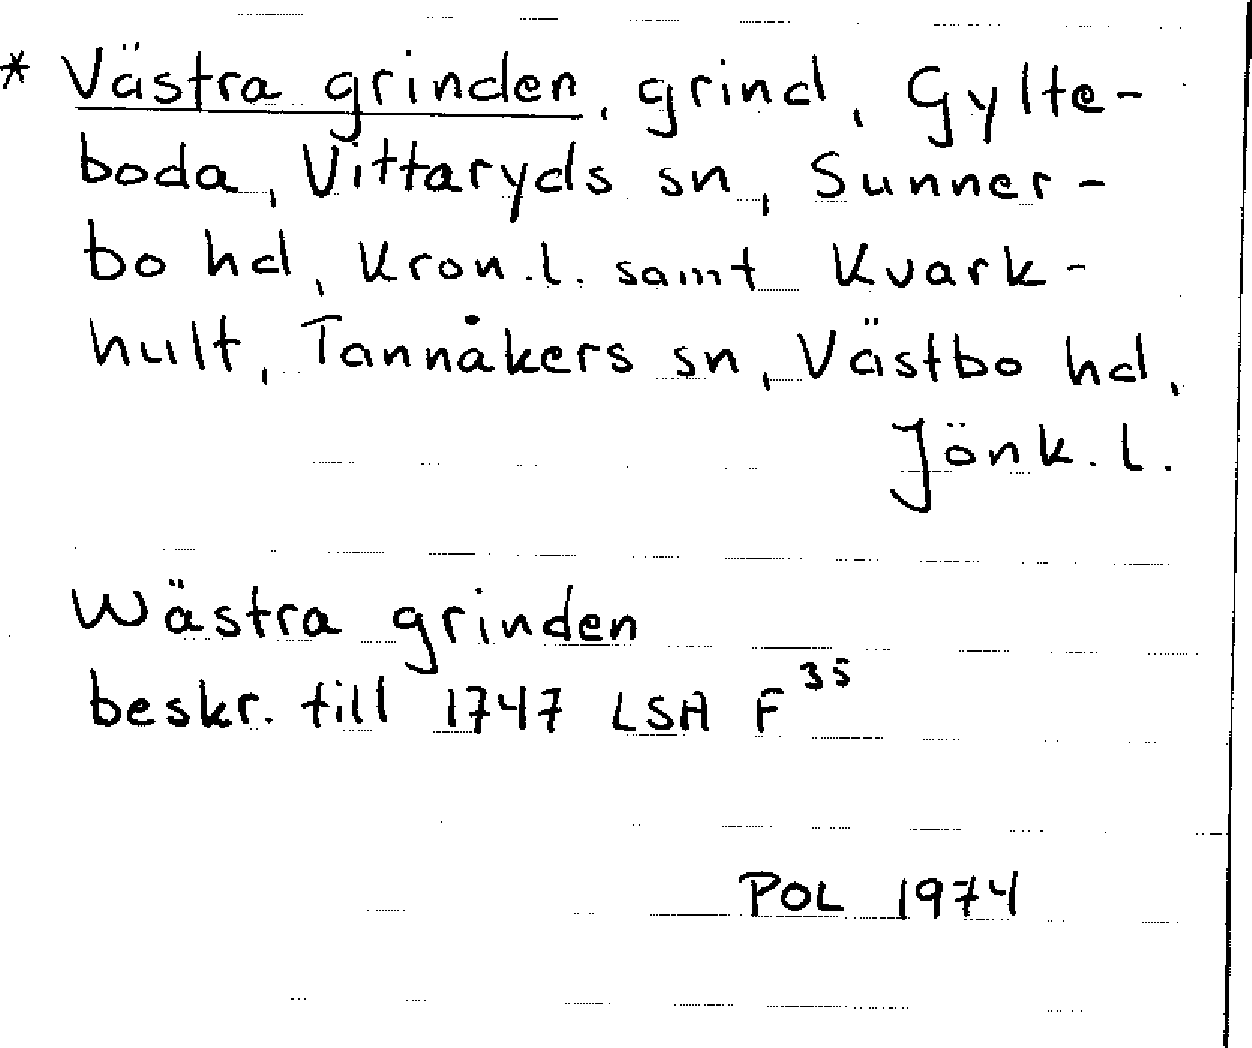 * Västra grinden, grind, Gylte-
boda, Vittaryds sn, Sunner-
bo hd, Kron.l. samt Kvark-
hult, Tannåkers sn, Västbo hd,
Jönk.l.
Wästra grinden
beskr. till 1747 LSA F³⁵
POL 1974